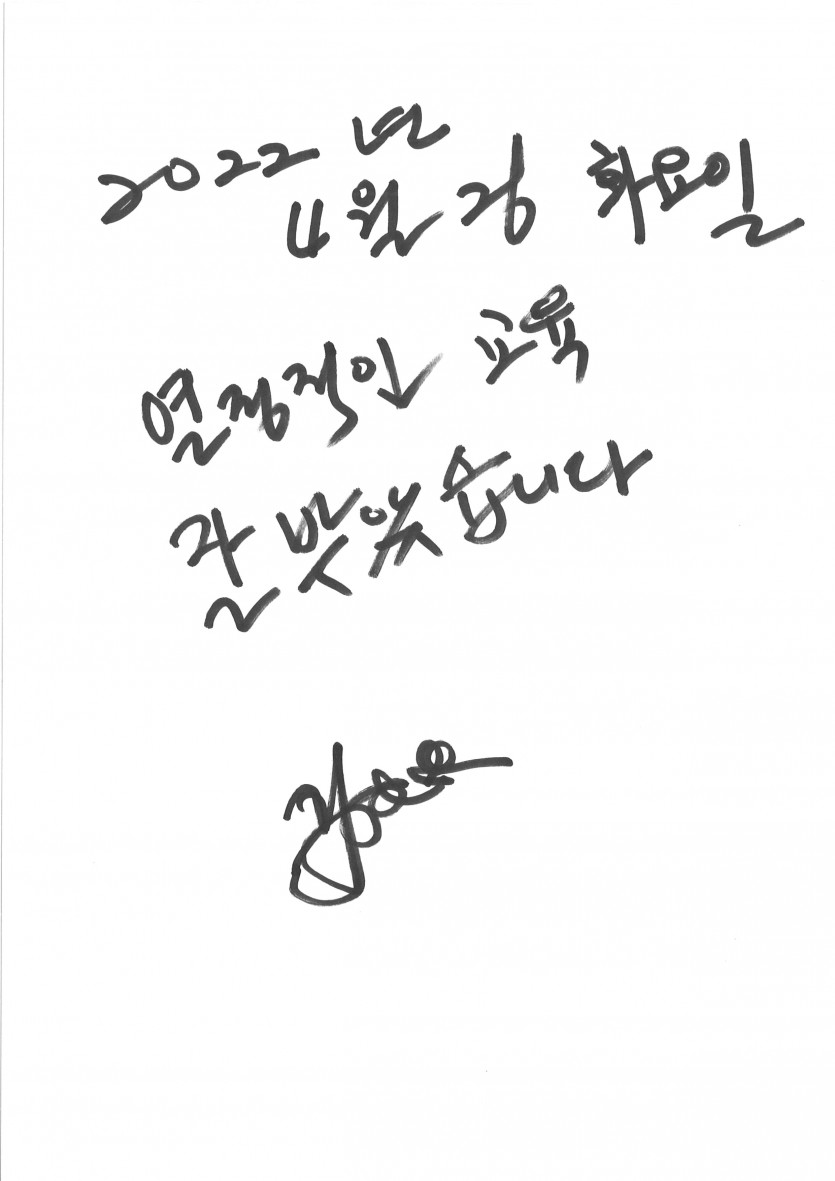 2022년
4월 26 화요일
열정적인 교육
잘 받았습니다